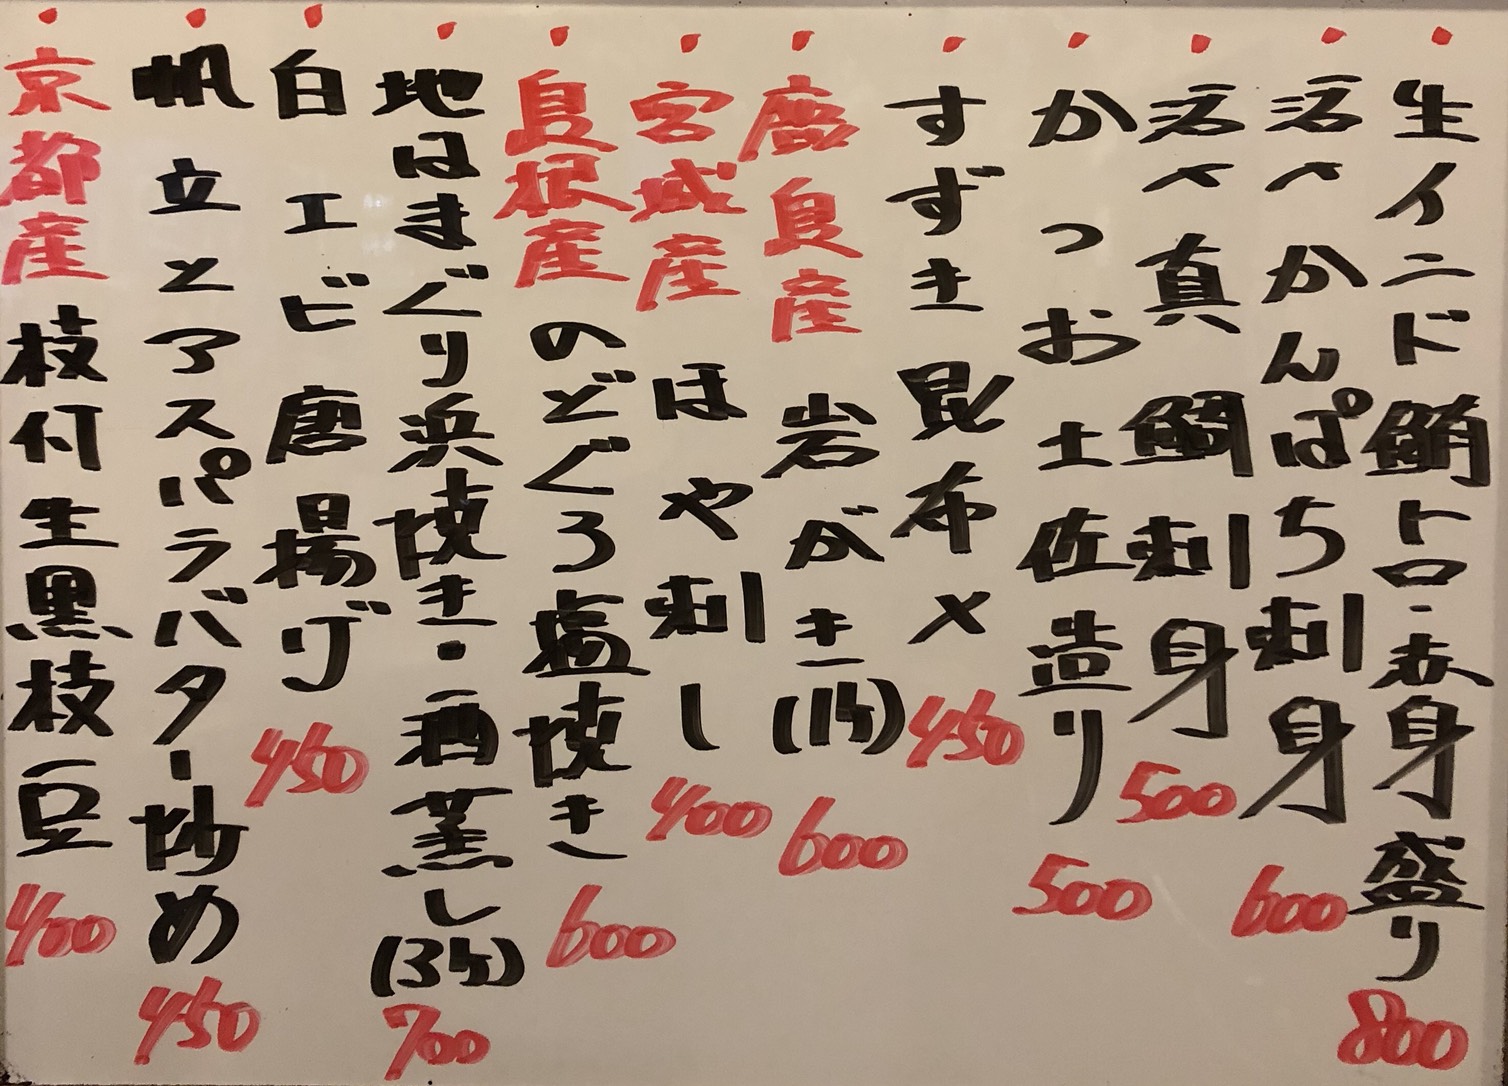 生インド鮪トロ・赤身盛り 800
活〆かんぱち刺身 600
活〆真鯛刺身 500
かつお土佐造り 500
すずき昆布〆 450
鹿島産 岩がき(1ケ) 600
宮城産 ほや刺し 400
島根産 のどぐろ塩焼き 600
地はまぐり浜焼き・酒蒸し(3ケ) 700
白エビ唐揚げ 450
帆立とアスパラバター炒め 450
京都産 枝付生黒枝豆 400